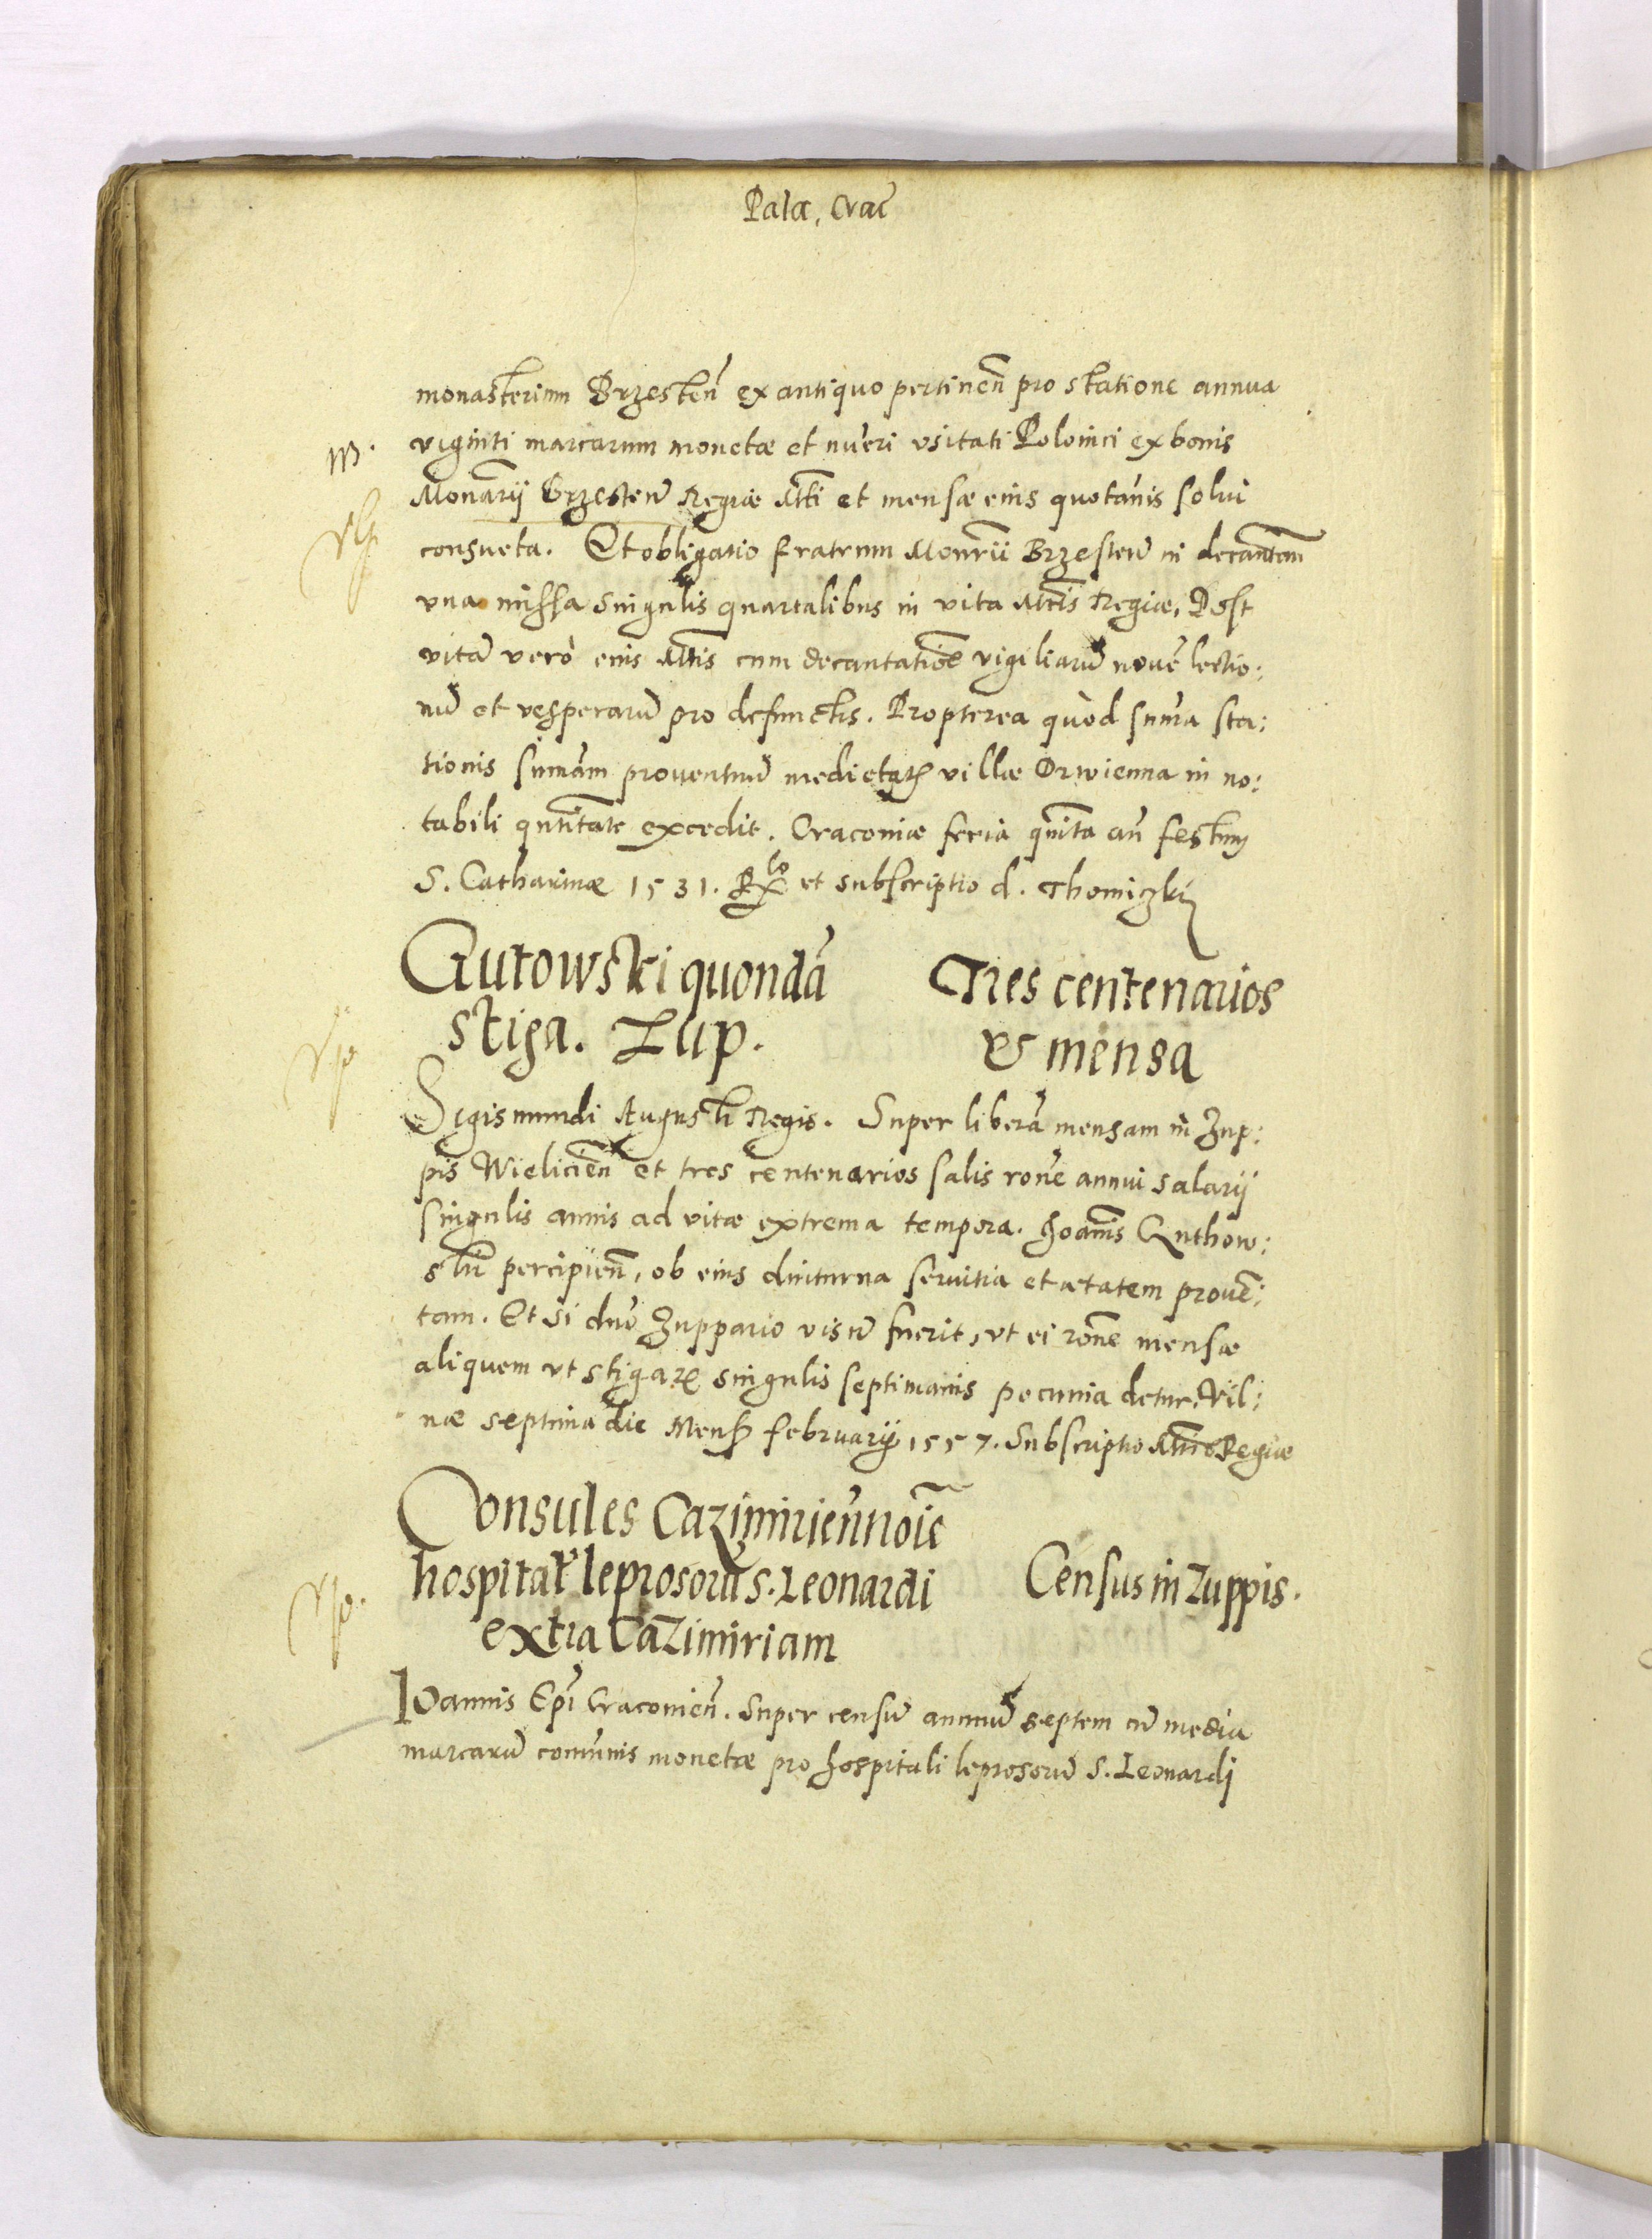 Pala. Crac̃
monasterium Brzesteñ ex antiquo pertineñ pro statione annua
viginti marcarum monetæ et nũeri vsitati Polonici ex bonis
Monãrij Brzesteñ Regiæ Mti et mensæ eius quotañis solui
consueta. Et obligatio Fratrum Monrii Brzesteñ in decantañ
vna missa singulis quartalibus in vita Mtis Regiæ, Post
vitã verò eius Mtis cum decantatiõe vigiliarũ nouẽ lectio:
nũ et vesperarũ pro defunctis. Propterea quòd sum̃a sta:
tionis sum̃am prouentuũ medietatis villæ Orwienna in no:
tabili qntitate excedit. Cracoviæ feria quinta añ festum
S. Catharinæ 1531. Rlo et subscriptio d. Thomiczki
Gutowski quondã
stiga. Zup.
Tres centenarios
et mensa
Sigismundi Augusti Regis. Super liberã mensam in Zup:
pis Wielicieñ et tres centenarios salis rõne annui salarij
singulis annis ad vitæ extrema tempora. Joannis Guthow:
skii percipieñ, ob eius diuturna seruitia et ætatem prouec:
tam. Et si dño Zuppario visũ fuerit, vt ei rõne mensæ
aliquem vt stigar singulis septimanis pecunia detur. Vil:
næ septima die Mens februarij 1557. Subscriptio Mtis Regiæ
Consules Cazimirieñ noie
hospital leprosorũ S. Leonardi
extra Cazimiriam
Census in Zuppis.
Ioannis Epi Cracovieñ. Super censũ annuũ septem cũ media
marcarũ com̃unis monetæ pro hospitali leprosorũ S. Leonardi